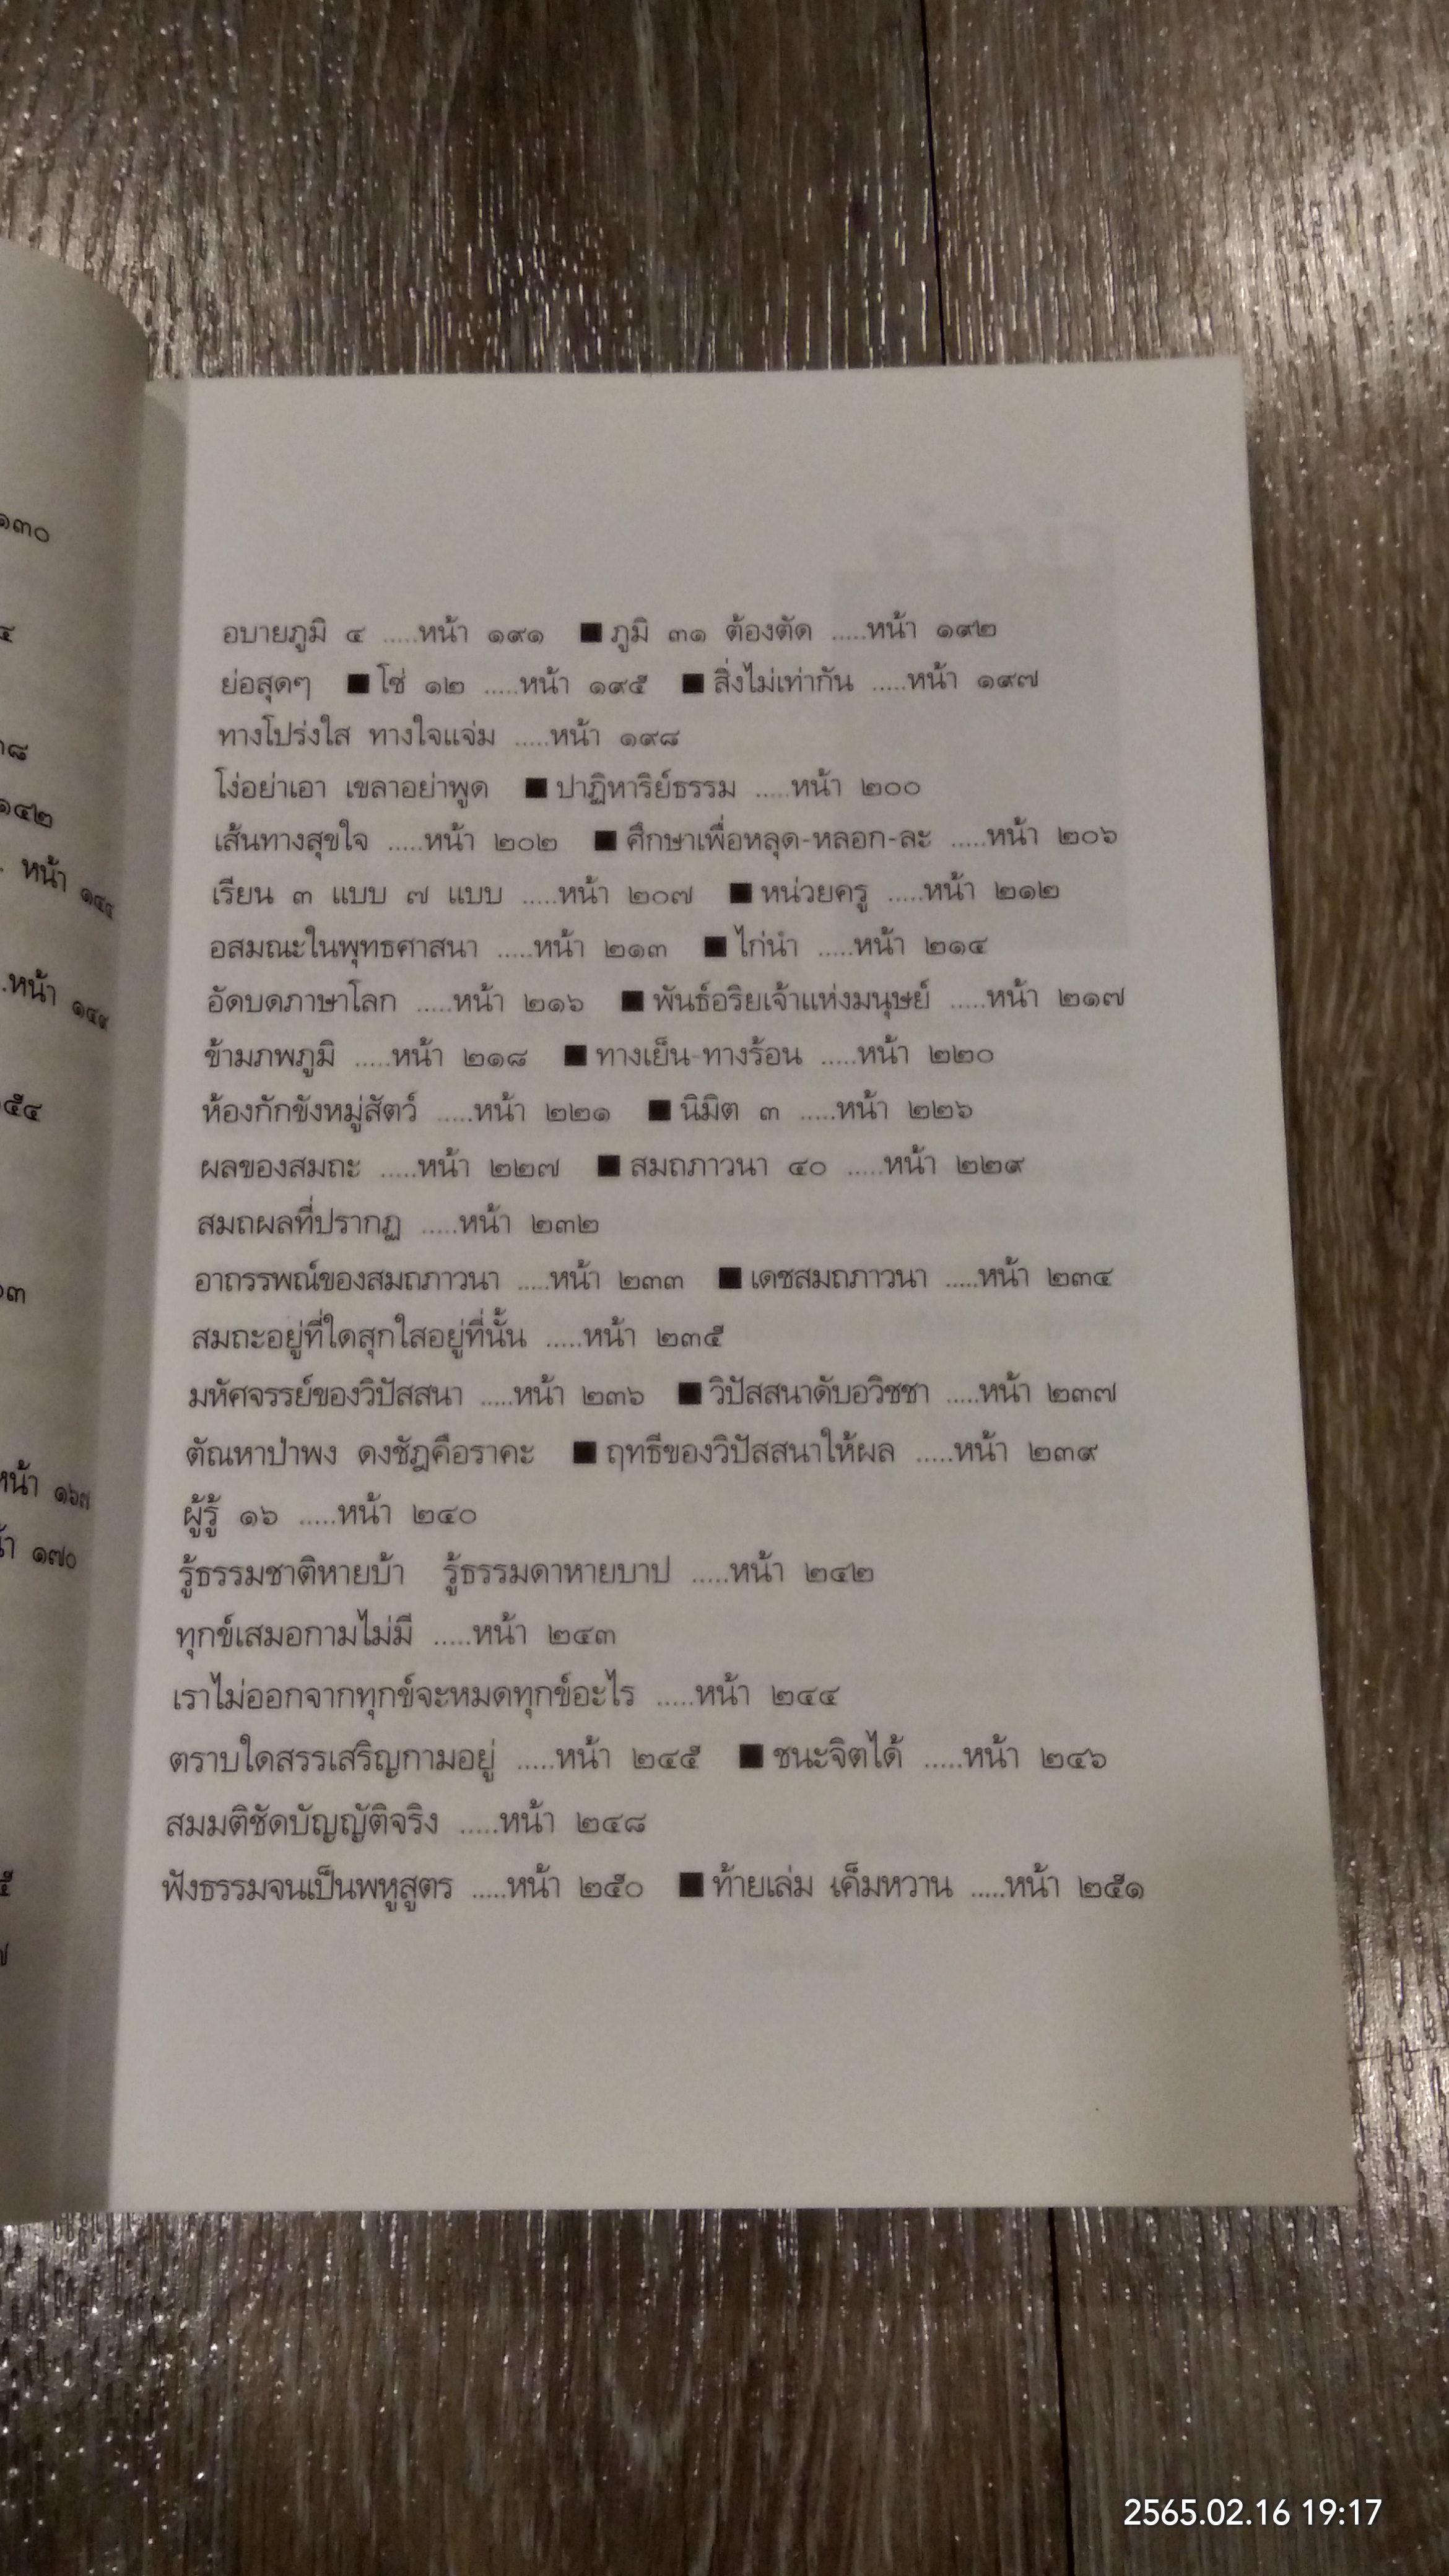 ๑๓๐
๔
๑๔๒
หน้า ๑๔๔
.หน้า ๑๔๙
๕๔
๓
หน้า ๑๖๗
๑๗๐
อบายภูมิ ๔ .....หน้า ๑๙๑ ■ ภูมิ ๓๑ ต้องตัด .....หน้า ๑๙๒
ย่อสุดๆ ■ โซ่ ๑๒ .....หน้า ๑๙๕ ■ สิ่งไม่เท่ากัน .....หน้า ๑๙๗
ทางโปร่งใส ทางใจแจ่ม .....หน้า ๑๙๘
โง่อย่าเอา เขลาอย่าพูด ■ ปาฏิหาริย์ธรรม .....หน้า ๒๐๐
เส้นทางสุขใจ .....หน้า ๒๐๒ ■ ศึกษาเพื่อหลุด-หลอก-ละ .....หน้า ๒๐๖
เรียน ๓ แบบ ๗ แบบ .....หน้า ๒๐๗ ■ หน่วยครู .....หน้า ๒๑๒
อสมณะในพุทธศาสนา .....หน้า ๒๑๓ ■ ไก่นำ .....หน้า ๒๑๔
อัดบดภาษาโลก .....หน้า ๒๑๖ ■ พันธ์อริยเจ้าแห่งมนุษย์ .....หน้า ๒๑๗
ข้ามภพภูมิ .....หน้า ๒๑๘ ■ ทางเย็น-ทางร้อน .....หน้า ๒๒๐
ห้องกักขังหมู่สัตว์ .....หน้า ๒๒๑ ■ นิมิต ๓ .....หน้า ๒๒๖
ผลของสมถะ .....หน้า ๒๒๗ ■ สมถภาวนา ๔๐ .....หน้า ๒๒๙
สมถผลที่ปรากฏ .....หน้า ๒๓๒
อาถรรพณ์ของสมถภาวนา .....หน้า ๒๓๓ ■ เดชสมถภาวนา .....หน้า ๒๓๔
สมถะอยู่ที่ใดสุกใสอยู่ที่นั้น .....หน้า ๒๓๕
มหัศจรรย์ของวิปัสสนา .....หน้า ๒๓๖ ■ วิปัสสนาดับอวิชชา .....หน้า ๒๓๗
ตัณหาป่าพง ดงชัฎคือราคะ ■ ฤทธีของวิปัสสนาให้ผล .....หน้า ๒๓๙
ผู้รู้ ๑๖ .....หน้า ๒๔๐
รู้ธรรมชาติหายบ้า รู้ธรรมดาหายบาป .....หน้า ๒๔๒
ทุกข์เสมอกามไม่มี .....หน้า ๒๔๓
เราไม่ออกจากทุกข์จะหมดทุกข์อะไร .....หน้า ๒๔๔
ตราบใดสรรเสริญกามอยู่ .....หน้า ๒๔๕ ■ ชนะจิตได้ .....หน้า ๒๔๖
สมมติชัดบัญญัติจริง .....หน้า ๒๔๘
ฟังธรรมจนเป็นพหูสูตร .....หน้า ๒๕๐ ■ ท้ายเล่ม เค็มหวาน .....หน้า ๒๕๑
2565.02.16 19:17